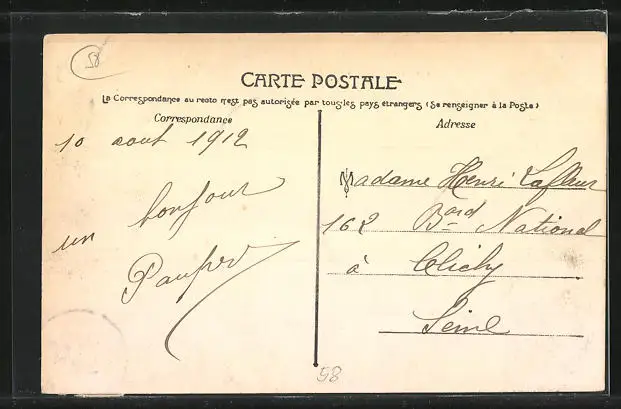 58
CARTE POSTALE
La Correspondance au recto n'est pas autorisée par tous les pays étrangers (Se renseigner à la Poste)
Correspondance
10 aout 1912
un bonjour
Adresse
Madame Henri Lafleur
162 Bard National
à Clichy
Seine
58